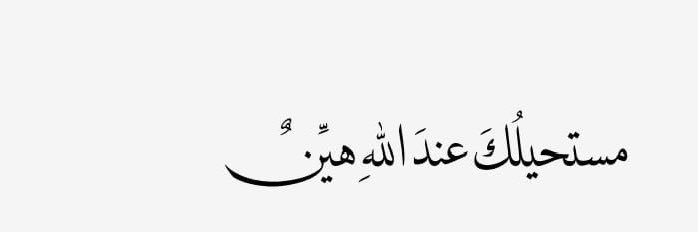 مستحيلُكَ عندَ اللهِ هيِّنٌ